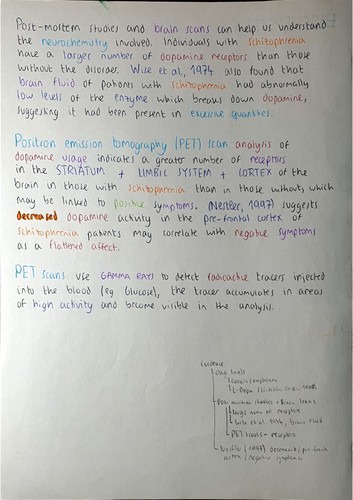 Post-mortem studies and brain scans can help us understand
the neurochemistry involved. Individuals with schitzophrenia
have a larger number of dopamine receptors than those
without the disorder. Wise et al., 1974 also found that
brain fluid of patients with schitzophrenia had abnormally
low levels of the enzyme which breaks down dopamine,
suggesting it had been present in excessive quantities.
Positron emission tomography (PET) scan analysis of
dopamine usage indicates a greater number of receptors
in the STRIATUM + LIMBIC SYSTEM + CORTEX of the
brain in those with schitzophrenia than in those without, which
may be linked to positive symptoms. (Nestler, 1997) suggests
decreased dopamine activity in the pre-frontal cortex of
schitzophrenia patients may correlate with negative symptoms
as a flattened affect.
PET scans use GAMMA RAYS to detect radioactive tracers injected
into the blood (eg. Glucose), the tracer accumulates in areas
of high activity and become visible in the analysis.
Evidence
Drug trials
L-Dopa
Post mortem studies + Brain Scans
large num of receptors
Wise et al 1974, brain fluid
PET scans - receptors
Nestler (1997) decreased/pre-front
cortex/negative symptoms